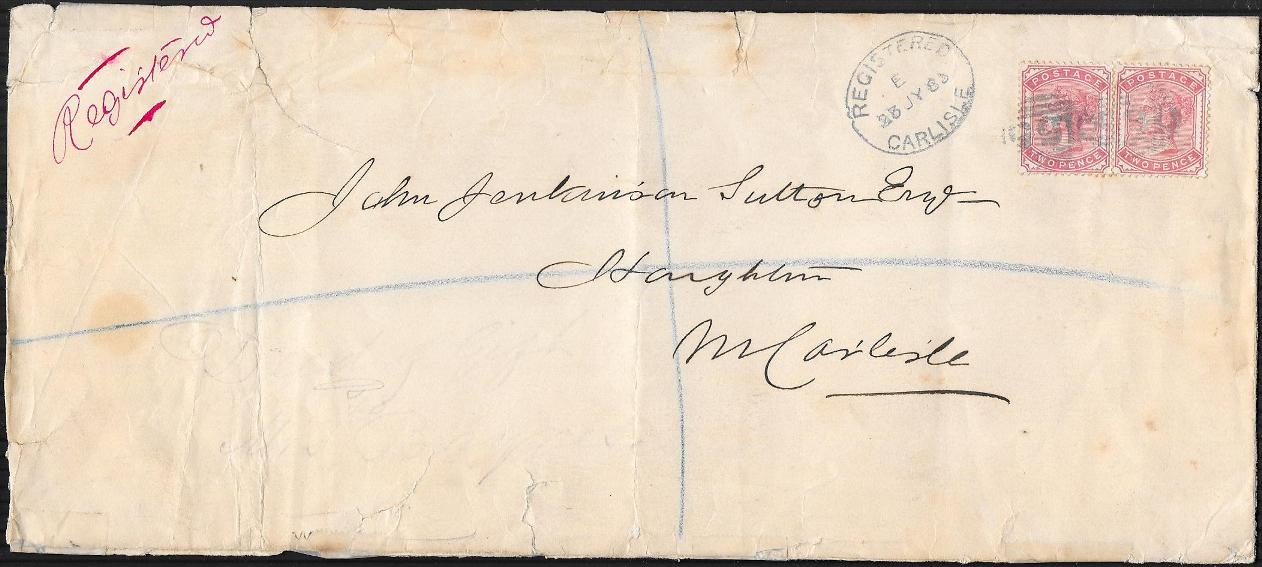 Registered
REGISTERED
E
23 JY 83
CARLISLE
POSTAGE
TWO PENCE
POSTAGE
TWO PENCE
John Jenkinson Sutton Esqr
Houghton
Nr Carlisle